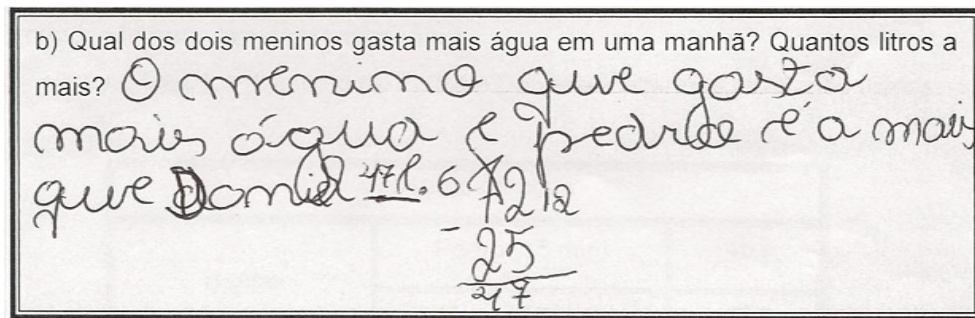 b) Qual dos dois meninos gasta mais água em uma manhã? Quantos litros a
mais? O menino que gasta
mais água é Pedro e é a mais
que Daniel 47l. 6 72 12
- 25
47